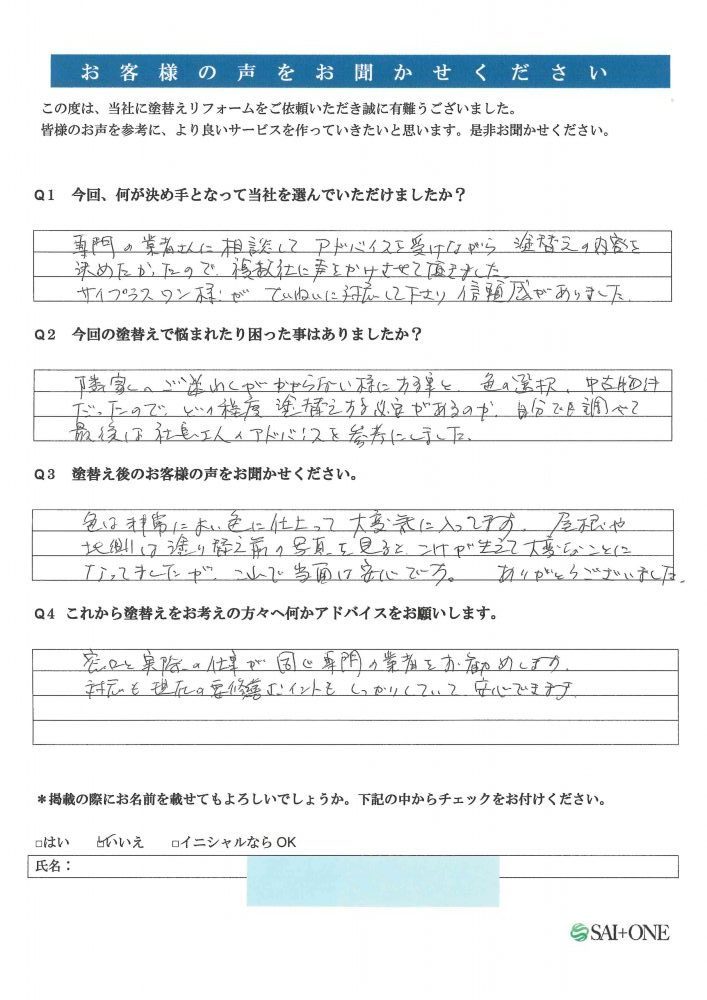 お客様の声をお聞かせください
この度は、当社に塗替えリフォームをご依頼いただき誠に有難うございました。
皆様のお声を参考に、より良いサービスを作っていきたいと思います。是非お聞かせください。
Q1 今回、何が決め手となって当社を選んでいただけましたか？
専門の業者さんに相談して アドバイスを受けながら 塗替えの内容を
決めたかったので、複数社に声をかけさせて頂きました。
サイプラスワン様が ていねいに対応して下さり 信頼感がありました。
Q2 今回の塗替えで悩まれたり困った事はありましたか？
隣家へご迷わくがかからない様にする事と、色の選択、中古物件
だったので、どの程度 塗替えする必要があるのか、自分でも調べて
最後は 社長さんのアドバイスを参考にしました。
Q3 塗替え後のお客様の声をお聞かせください。
色は非常によい色に仕上って 大変気に入ってます。 屋根や
北側は塗り替え前の写真を見ると、こけが生えて大変なことに
なってましたが、これで当面は安心です。 ありがとうございました。
Q4 これから塗替えをお考えの方々へ何かアドバイスをお願いします。
窓口と実際の仕事が同じ専門の業者をお勧めします。
対応も現在の要修繕ポイントも しっかりしていて 安心できます
＊掲載の際にお名前を載せてもよろしいでしょうか。下記の中からチェックをお付けください。
□はい ☑いいえ □イニシャルなら OK
氏名：
SAI+ONE